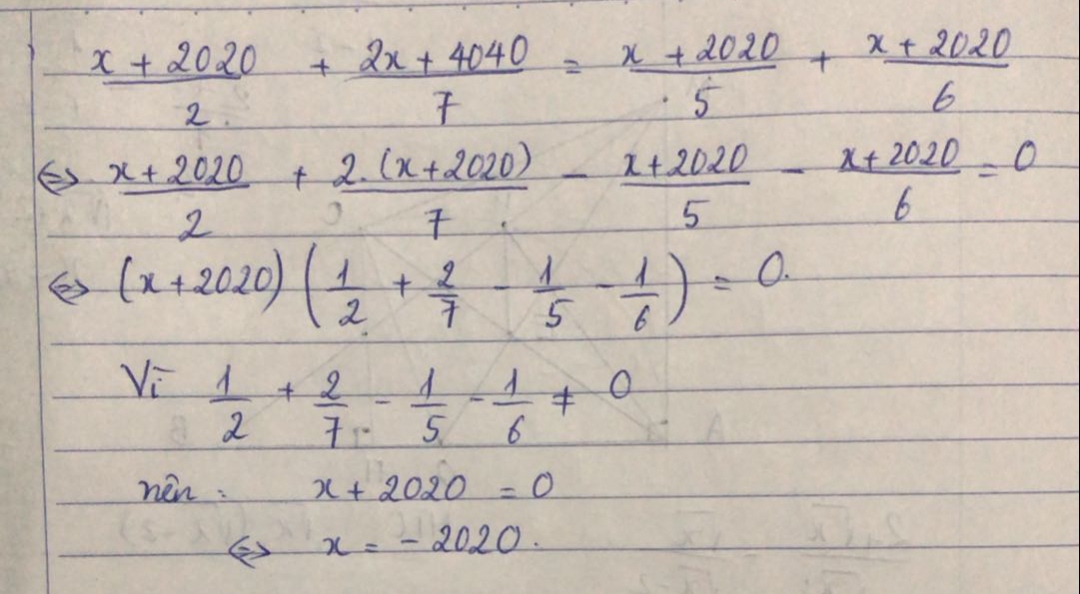 x + 2020 / 2 + 2x + 4040 / 7 = x + 2020 / 5 + x + 2020 / 6
⇔ x + 2020 / 2 + 2.(x + 2020) / 7 - x + 2020 / 5 - x + 2020 / 6 = 0
⇔ (x + 2020) (1/2 + 2/7 - 1/5 - 1/6) = 0.
Vì 1/2 + 2/7 - 1/5 - 1/6 ≠ 0
nên : x + 2020 = 0
⇔ x = - 2020.